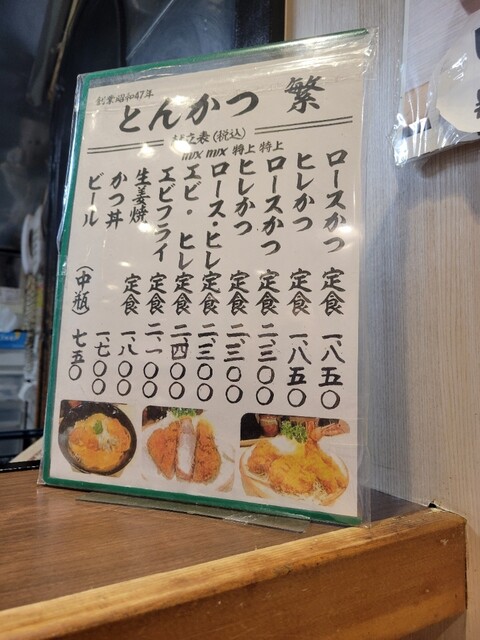 創業昭和47年
とんかつ 繁
献立表（税込）
ロースかつ 定食 一、八五〇
ヒレかつ 定食 一、八五〇
特上 ロースかつ 定食 二、三〇〇
特上 ヒレかつ 定食 二、三〇〇
mix ロース・ヒレ 定食 二、三〇〇
mix エビ・ヒレ 定食 二、四〇〇
エビフライ 定食 二、一〇〇
生姜焼 定食 一、八〇〇
かつ丼 一、七〇〇
ビール （中瓶） 七五〇